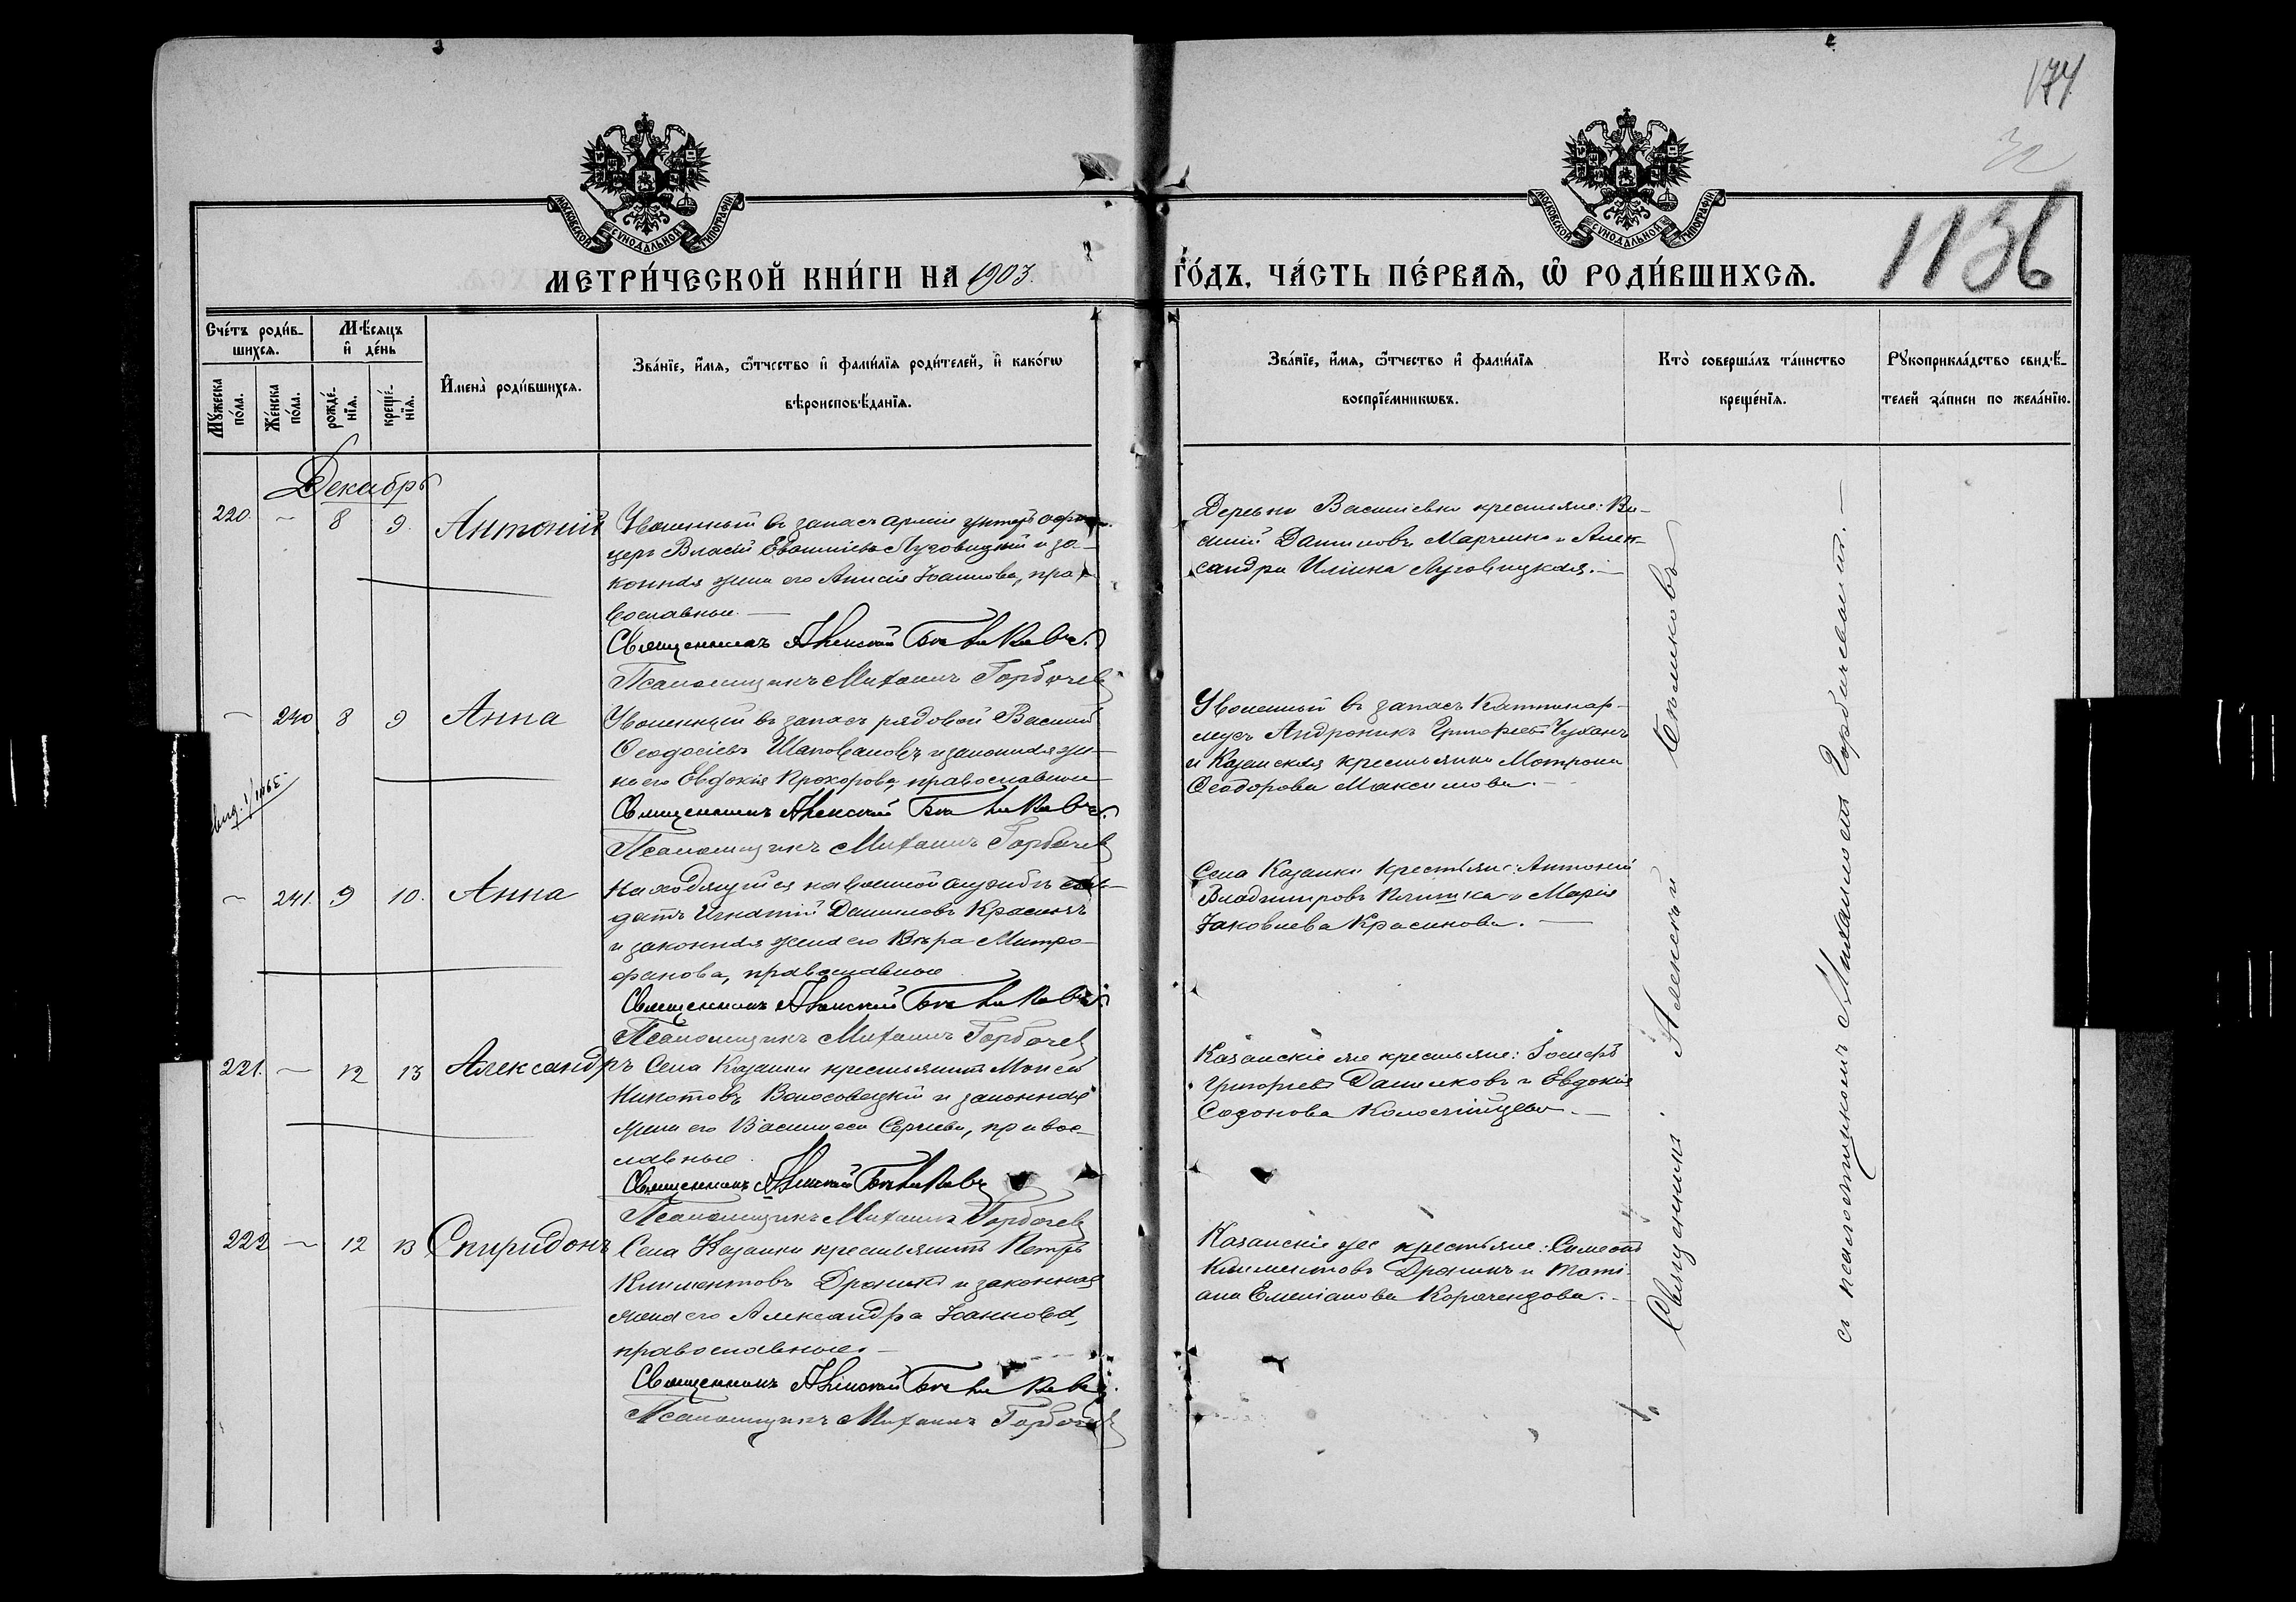 174
32
1136
МОСКОВСКОЙ СѴНОДАЛЬНОЙ ТИПОГРАФІИ
МОСКОВСКОЙ СѴНОДАЛЬНОЙ ТИПОГРАФІИ
МЕТРИ́ЧЕСКОЙ КНИ́ГИ НА 1903.
ГО́ДЪ, ЧА́СТЬ ПЕ́РВАѦ, Ѡ҆ РОДИ́ВШИХСѦ.
Сче́тъ роди́в-
шихсѧ.
Мꙋ́жеска по́ла.
Же́нска по́ла.
Мѣ́сѧцъ
и҆ де́нь
рожде́-
нїѧ.
креще́-
нїѧ.
И҆мена̀ роди́вшихсѧ.
Зва́нїе, и҆́мѧ, ѻ҆́тчество и҆ фами́лїѧ роди́телей, и҆ како́гѡ
вѣроисповѣ́данїѧ.
Зва́нїе, и҆́мѧ, ѻ҆́тчество и҆ фами́лїѧ
воспрїе́мникѡвъ.
Кто̀ соверша́лъ та́инство
креще́нїѧ.
Рꙋкоприкла́дство свидѣ́-
телей за́писи по жела́нїю.
Декабрь
220. — 8 9. Антоній
Уволенный въ запасъ арміи унтеръ офи-
церъ Власій Луговицкій и за-
конная жена его Анисія Іоаннова, пра-
вославные. —
Священникъ Алексій
Псаломщикъ Михаилъ Горбачевъ
Деревни Василевки крестьяне: Ва-
силій Даниловъ Марченко и Алек-
сандра Иліина Луговицкая. —
— 240 8 9 Анна
Уволенный въ запасъ рядовой Василій
Ѳеодосіевъ Шаповаловъ и законная же-
на его Евдокія Прохорова, православные
Священникъ Алексій
Псаломщикъ Михаилъ Горбачевъ
Уволенный въ запасъ Каптенар-
мусъ Андроникъ Григорьевъ Чуханъ
и Казанская крестьянка Матрона
Ѳеодорова Максимова. —
— 241. 9 10. Анна
Находящійся на военной службѣ сол-
датъ Игнатій Даниловъ
и законная жена его Вѣра Митро-
фанова, православные
Священникъ Алексій
Псаломщикъ Михаилъ Горбачевъ
Села Казанки крестьяне: Антоній
Владиміровъ и Марія
Іаковлева Красикова. —
221. — 12 13 Александръ
Села Казанки крестьянинъ Моисей
Никитовъ Волосовецкій и законная
жена его Василисса Сергіева, правос-
лавные.
Священникъ Алексій
Псаломщикъ Михаилъ Горбачевъ
Казанскіе же крестьяне: Іосифъ
Григорьевъ Данилковъ и Евдокія
Созонова
222 — 12 13 Спиридонъ
Села Казанки крестьянинъ Петръ
Климентовъ и законная
жена его Александра Іоаннова,
православные. —
Священникъ Алексій
Псаломщикъ Михаилъ Горбачевъ
Казанскіе же крестьяне: Симеонъ
Климентовъ и Тати-
ана Емеліанова —
Священникъ Алексѣй
съ псаломщикомъ Михаиломъ Горбачевымъ. —